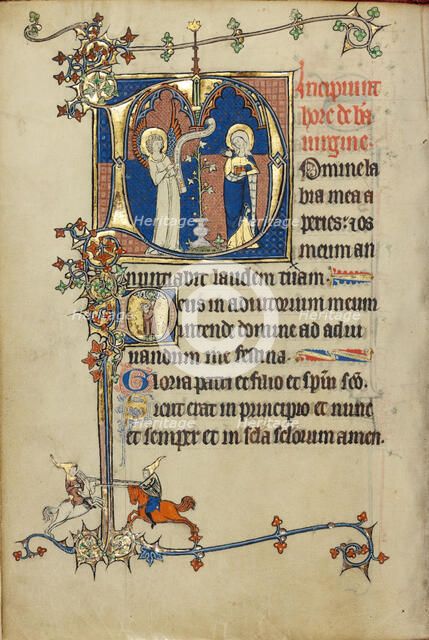 Incipiunt
hore de bᷓa
uirgine.
Domine la
bia mea a
peries: et os
meum an
nuntiabit laudem tuam.
Deus in adiutorium meum
intende domine ad adiu
uandum me festina.
Gloria patri et filio et spūi sc̄o.
Sicut erat in principio et nunc
et semper et in sc̄la sc̄lorum amen.
Heritage
Heritage
Heritage
Heritage
Heritage
Heritage